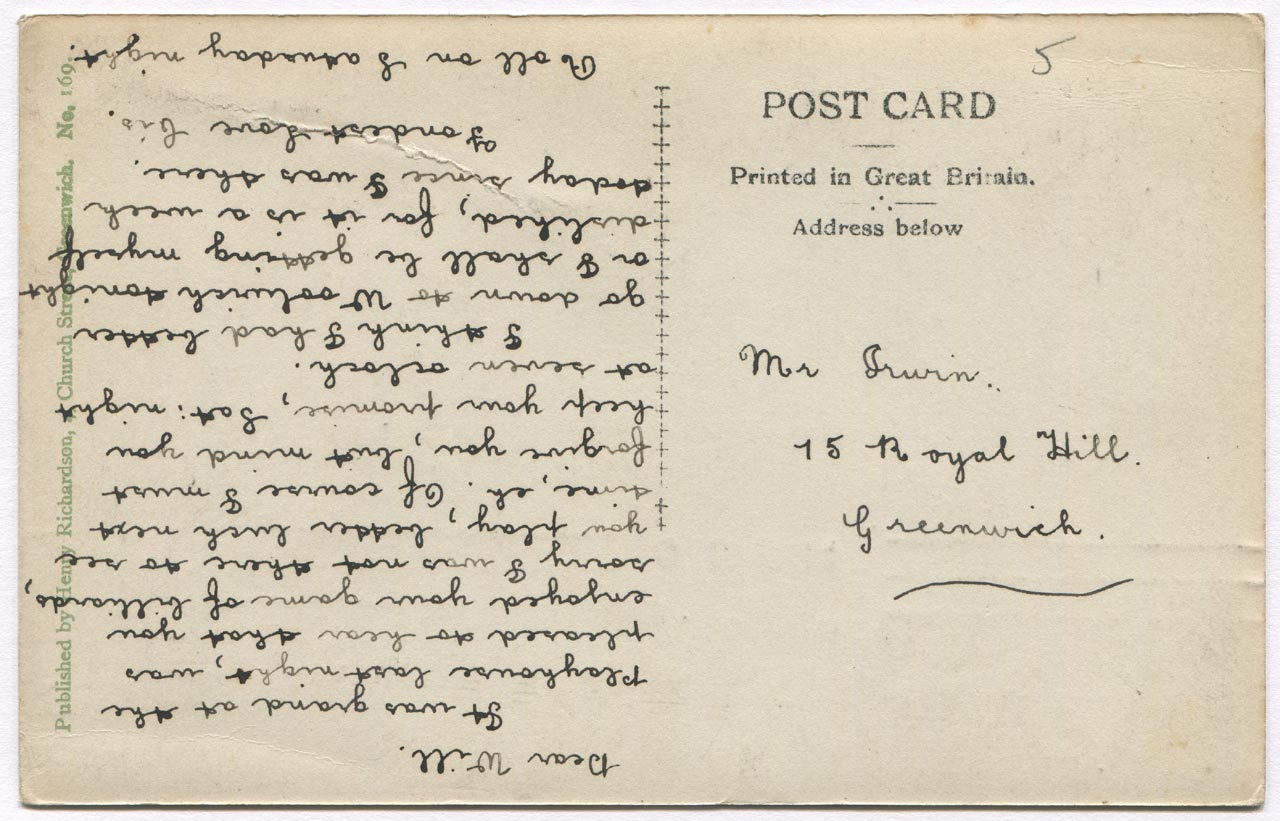 Dear Will.
It was grand at the
Playhouse last night, was
pleased to hear that you
enjoyed your game of billiards,
sorry I was not there to see
you play, better luck next
time, eh. Of course I must
forgive you, but mind you
keep your promise, Sat: night
at seven oclock.
I think I had better
go down to Woolwich tonight
or I shall be getting myself
disliked, for it is a week
today since I was there.
Fondest Love Cis.
Roll on Saturday night.
Published by Henry Richardson, Church Street, Greenwich. No. 169.
5
POST CARD
Printed in Great Britain.
Address below
Mr Irwin.
15 Royal Hill.
Greenwich.